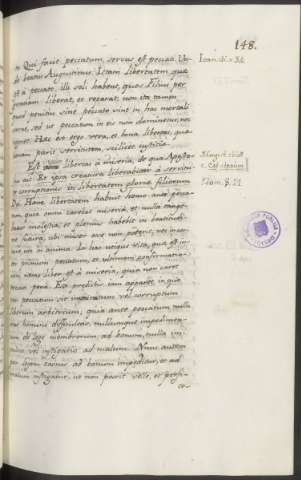 148.
Qui facit peccatum, servus est peccati. Un-
de beatus Augustinus: Istam libertatem, quæ
est à peccato, illi soli habent, quos Filius per
gratiam liberat, et reparat, non ita tamen
quod penitus sine peccato sint in hac mortali
carne, sed ut peccatum in eis non dominetur, nec
regnet. Hæc est ergo vera, et bona libertas, quæ
bonam parit servitutem, scilicet justitiæ.
Est libertas à miseria, de qua Apostolus
ait: Et ipsa creatura liberabitur à servitu-
te corruptionis in libertatem gloriæ filiorum
Dei. Hanc libertatem habuit homo ante pecca-
tum quia omni caruit miseria, et nulla tange-
batur molestia; et plenius habebit in beatitudi-
ne futura, ubi miser esse non poterit, nec in corpo-
re nec in anima. In hac vero vita, quæ est in-
ter primum peccatum, et ultimam confirmatio-
nem, nemo liber est à miseria, quia non caret
peccati pœna. Ex prædictis jam apparet, in quo
per peccatum sit imminutum vel corruptum
liberum arbitrium, quia ante peccatum nulla
erat homini difficultas, nullumque impedimen-
tum de lege membrorum ad bonum, nulla im-
pulsio vel instigatio ad malum. Nunc autem
per legem carnis ad bonum impeditur, et ad
malum instigatur, ut non possit velle, et perfi-
ce-
Joan. 8. v. 34.
Rom. 8. 21